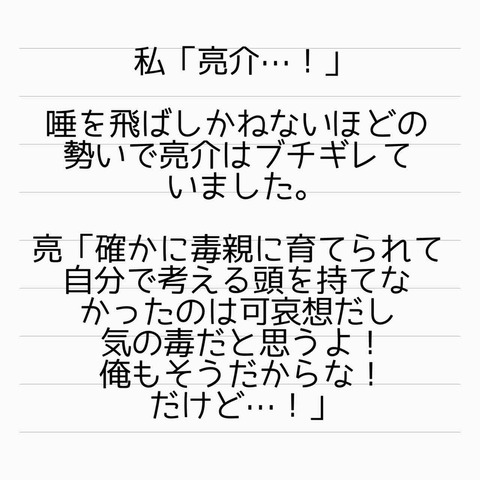 私「亮介…！」
唾を飛ばしかねないほどの
勢いで亮介はブチギレて
いました。
亮「確かに毒親に育てられて
自分で考える頭を持てな
かったのは可哀想だし
気の毒だと思うよ！
俺もそうだからな！
だけど…！」